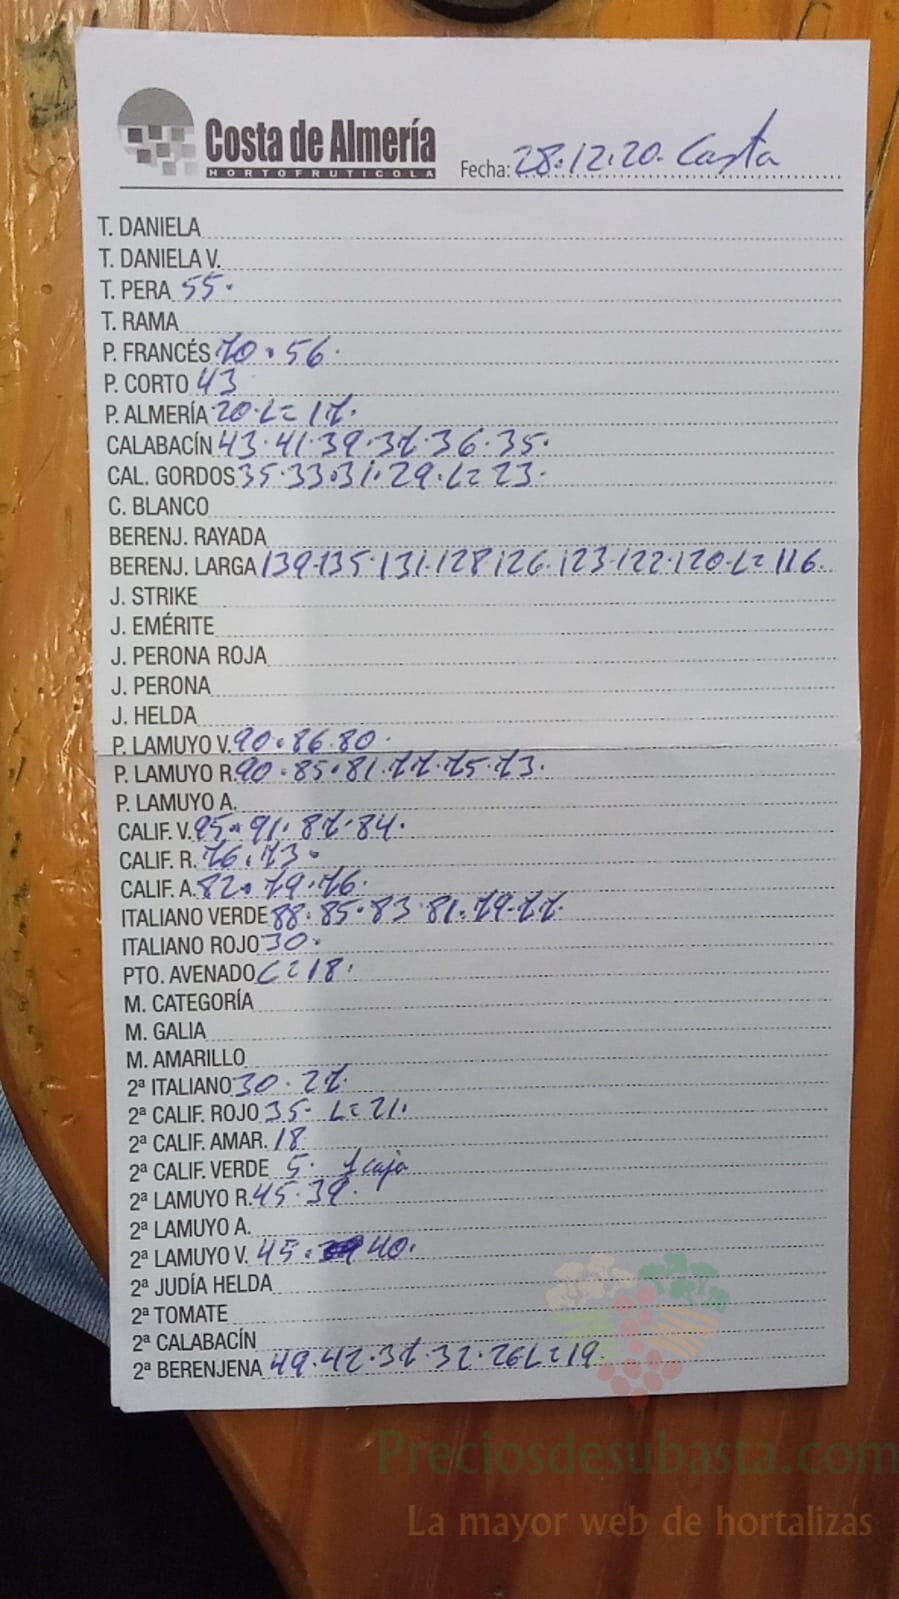 Costa de Almería
HORTOFRUTICOLA
Fecha: 28.12.20. Costa
T. DANIELA
T. DANIELA V.
T. PERA 55.
T. RAMA
P. FRANCÉS 70.56.
P. CORTO 43
P. ALMERÍA 20.L=17.
CALABACÍN 43.41.39.37.36.35.
CAL. GORDOS 35.33.31.29.L=23.
C. BLANCO
BERENJ. RAYADA
BERENJ. LARGA 139.135.131.128 126.123.122.120.L=116.
J. STRIKE
J. EMÉRITE
J. PERONA ROJA
J. PERONA
J. HELDA
P. LAMUYO V. 90.86.80.
P. LAMUYO R. 90.85.81.77.75.73.
P. LAMUYO A.
CALIF. V. 95.91.87.84.
CALIF. R. 76.73.
CALIF. A. 82.79.76.
ITALIANO VERDE 88.85.83 81.79.77.
ITALIANO ROJO 30.
PTO. AVENADO L=18.
M. CATEGORÍA
M. GALIA
M. AMARILLO
2ª ITALIANO 30.27.
2ª CALIF. ROJO 35. L=21.
2ª CALIF. AMAR. 18
2ª CALIF. VERDE 5. 1 caja
2ª LAMUYO R. 45.39.
2ª LAMUYO A.
2ª LAMUYO V. 45. 40.
2ª JUDÍA HELDA
2ª TOMATE
2ª CALABACÍN
2ª BERENJENA 49.42.37.32.26 L=19
Preciosdesubasta.com
La mayor web de hortalizas